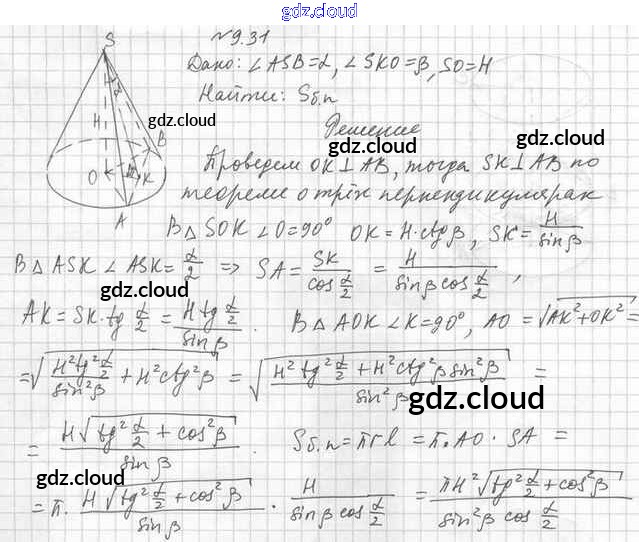 gdz.cloud
№9.31
Дано: ∠ASB=α, ∠SKO=β, SO=H
Найти: Sб.п
gdz.cloud
Решение
gdz.cloud
Проведем OK⊥AB, тогда SK⊥AB по
теореме о трёх перпендикулярах
S
H
α
B
O
K
A
В△ SOK ∠O=90° OK=H·ctgβ, SK=H/sinβ
gdz.cloud
В△ ASK ∠ASK=α/2 ⇒ SA=SK/cos α/2 = H/(sinβ cos α/2),
gdz.cloud
AK=SK·tg α/2 = H tg α/2 / sinβ. В△ AOK ∠K=90°, AO=√(AK²+OK²)=
=√(H²tg² α/2 / sin²β + H²ctg²β) = √((H²tg² α/2 + H²ctg²β sin²β)/sin²β) =
gdz.cloud
= H√(tg² α/2 + cos²β) / sinβ Sб.п=πrl=π·AO·SA=
gdz.cloud
=π· H√(tg² α/2 + cos²β) / sinβ · H/(sinβ cos α/2) = πH²√(tg² α/2 + cos²β) / (sin²β cos α/2)
gdz.cloud